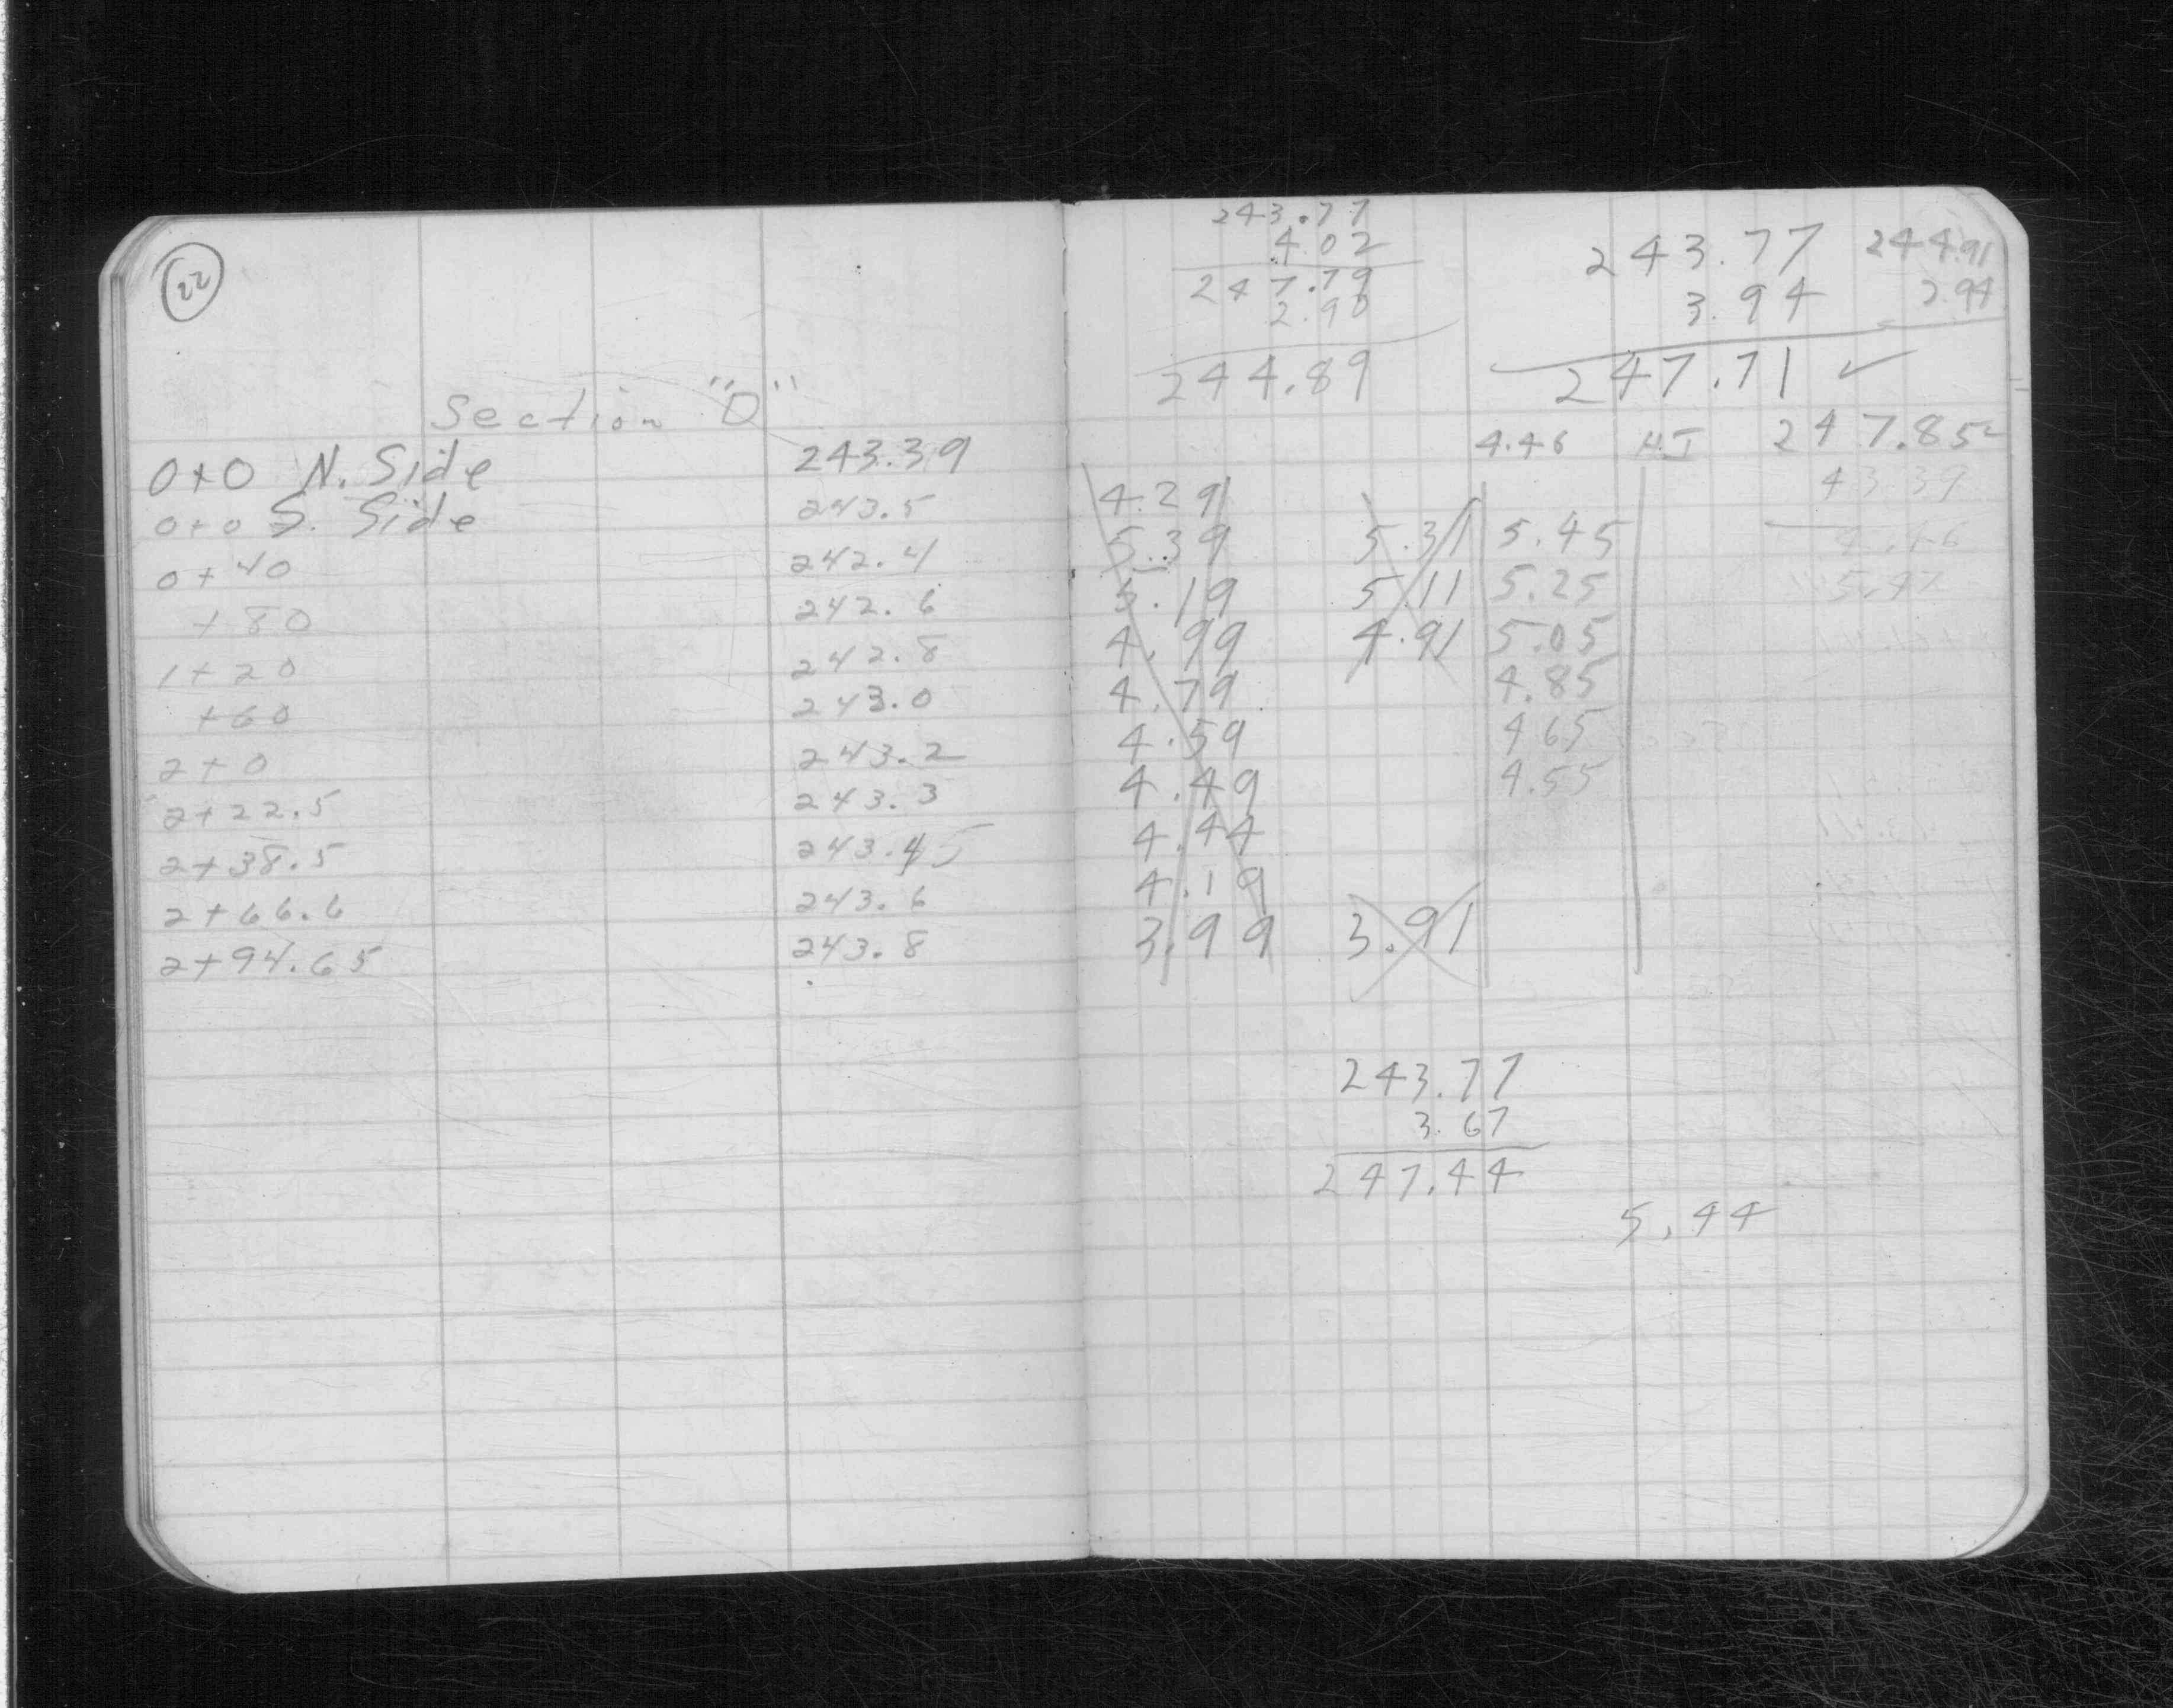 22
Section "D"
0+0 N. Side 243.39
0+0 S. Side 243.5
0+40 242.4
+80 242.6
1+20 242.8
+60 243.0
2+0 243.2
2+22.5 243.3
2+38.5 243.45
2+66.6 243.6
2+94.65 243.8
243.77
4.02
247.79
2.90
244.89
243.77 244.91
3.94 2.94
247.71 ✓
4.46 H.I 247.85
4.29 43.39
5.39 5.31 5.45 4.46
5.19 5.11 5.25
4.99 4.91 5.05
4.79 4.85
4.59 4.65
4.49 4.55
4.44
4.19
3.99 3.91
243.77
3.67
247.44
5.44